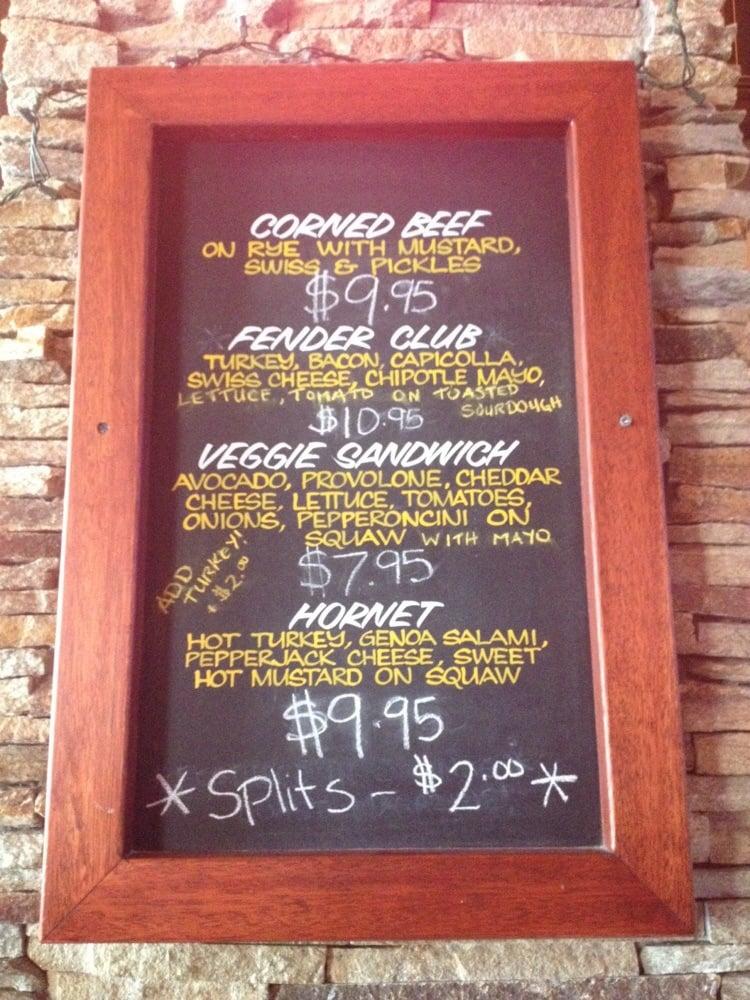 CORNED BEEF
ON RYE WITH MUSTARD,
SWISS & PICKLES
$9.95
FENDER CLUB
TURKEY, BACON, CAPICOLLA,
SWISS CHEESE, CHIPOTLE MAYO,
LETTUCE, TOMATO ON TOASTED
SOURDOUGH
$10.95
VEGGIE SANDWICH
AVOCADO, PROVOLONE, CHEDDAR
CHEESE, LETTUCE, TOMATOES,
ONIONS, PEPPERONCINI ON
SQUAW WITH MAYO
ADD
TURKEY!
+$2.00
$7.95
HORNET
HOT TURKEY, GENOA SALAMI,
PEPPERJACK CHEESE, SWEET
HOT MUSTARD ON SQUAW
$9.95
*Splits - $2.00*